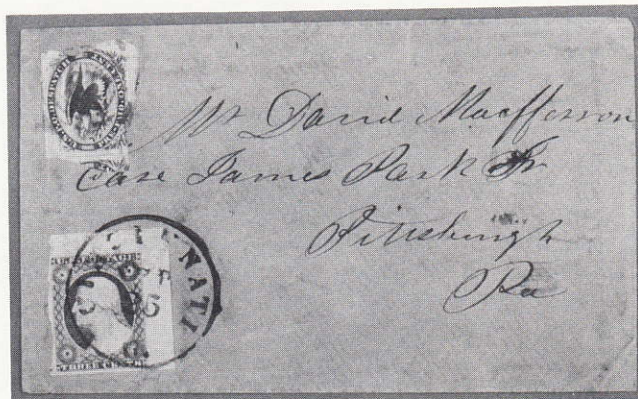 Mr David Macfferson
Care James Park Jr
Pittsburgh
Pa
NNATI
5
THREE CE